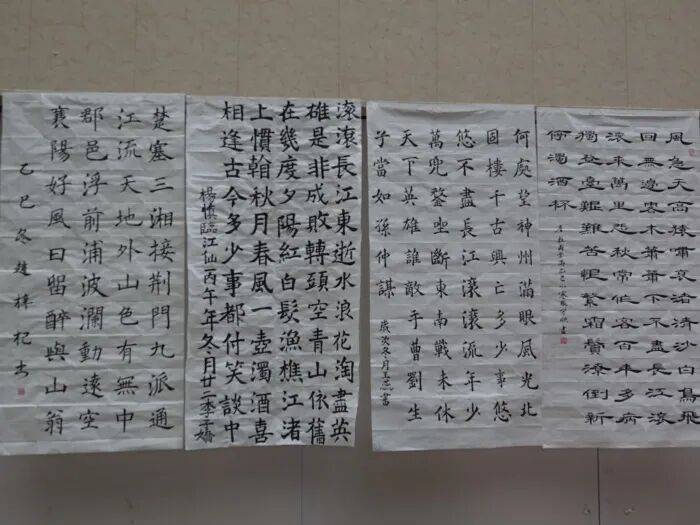 風急天高猿嘯哀渚清沙白鳥飛
回無邊落木蕭蕭下不盡長江滾
滾來萬里悲秋常作客百年多病
獨登臺艱難苦恨繁霜鬢潦倒新
停濁酒杯
何處望神州滿眼風光北
固樓千古興亡多少事悠
悠不盡長江滾滾流年少
萬兜鍪坐斷東南戰未休
天下英雄誰敵手曹劉生
子當如孫仲謀 歲次冬月王書
滾滾長江東逝水浪花淘盡英
雄是非成敗轉頭空青山依舊
在幾度夕陽紅白髮漁樵江渚
上慣看秋月春風一壺濁酒喜
相逢古今多少事都付笑談中
楊慎臨江仙丙午年冬月廿二
楚塞三湘接荆門九派通
江流天地外山色有無中
郡邑浮前浦波瀾動遠空
襄陽好風日留醉與山翁
乙巳冬趙書